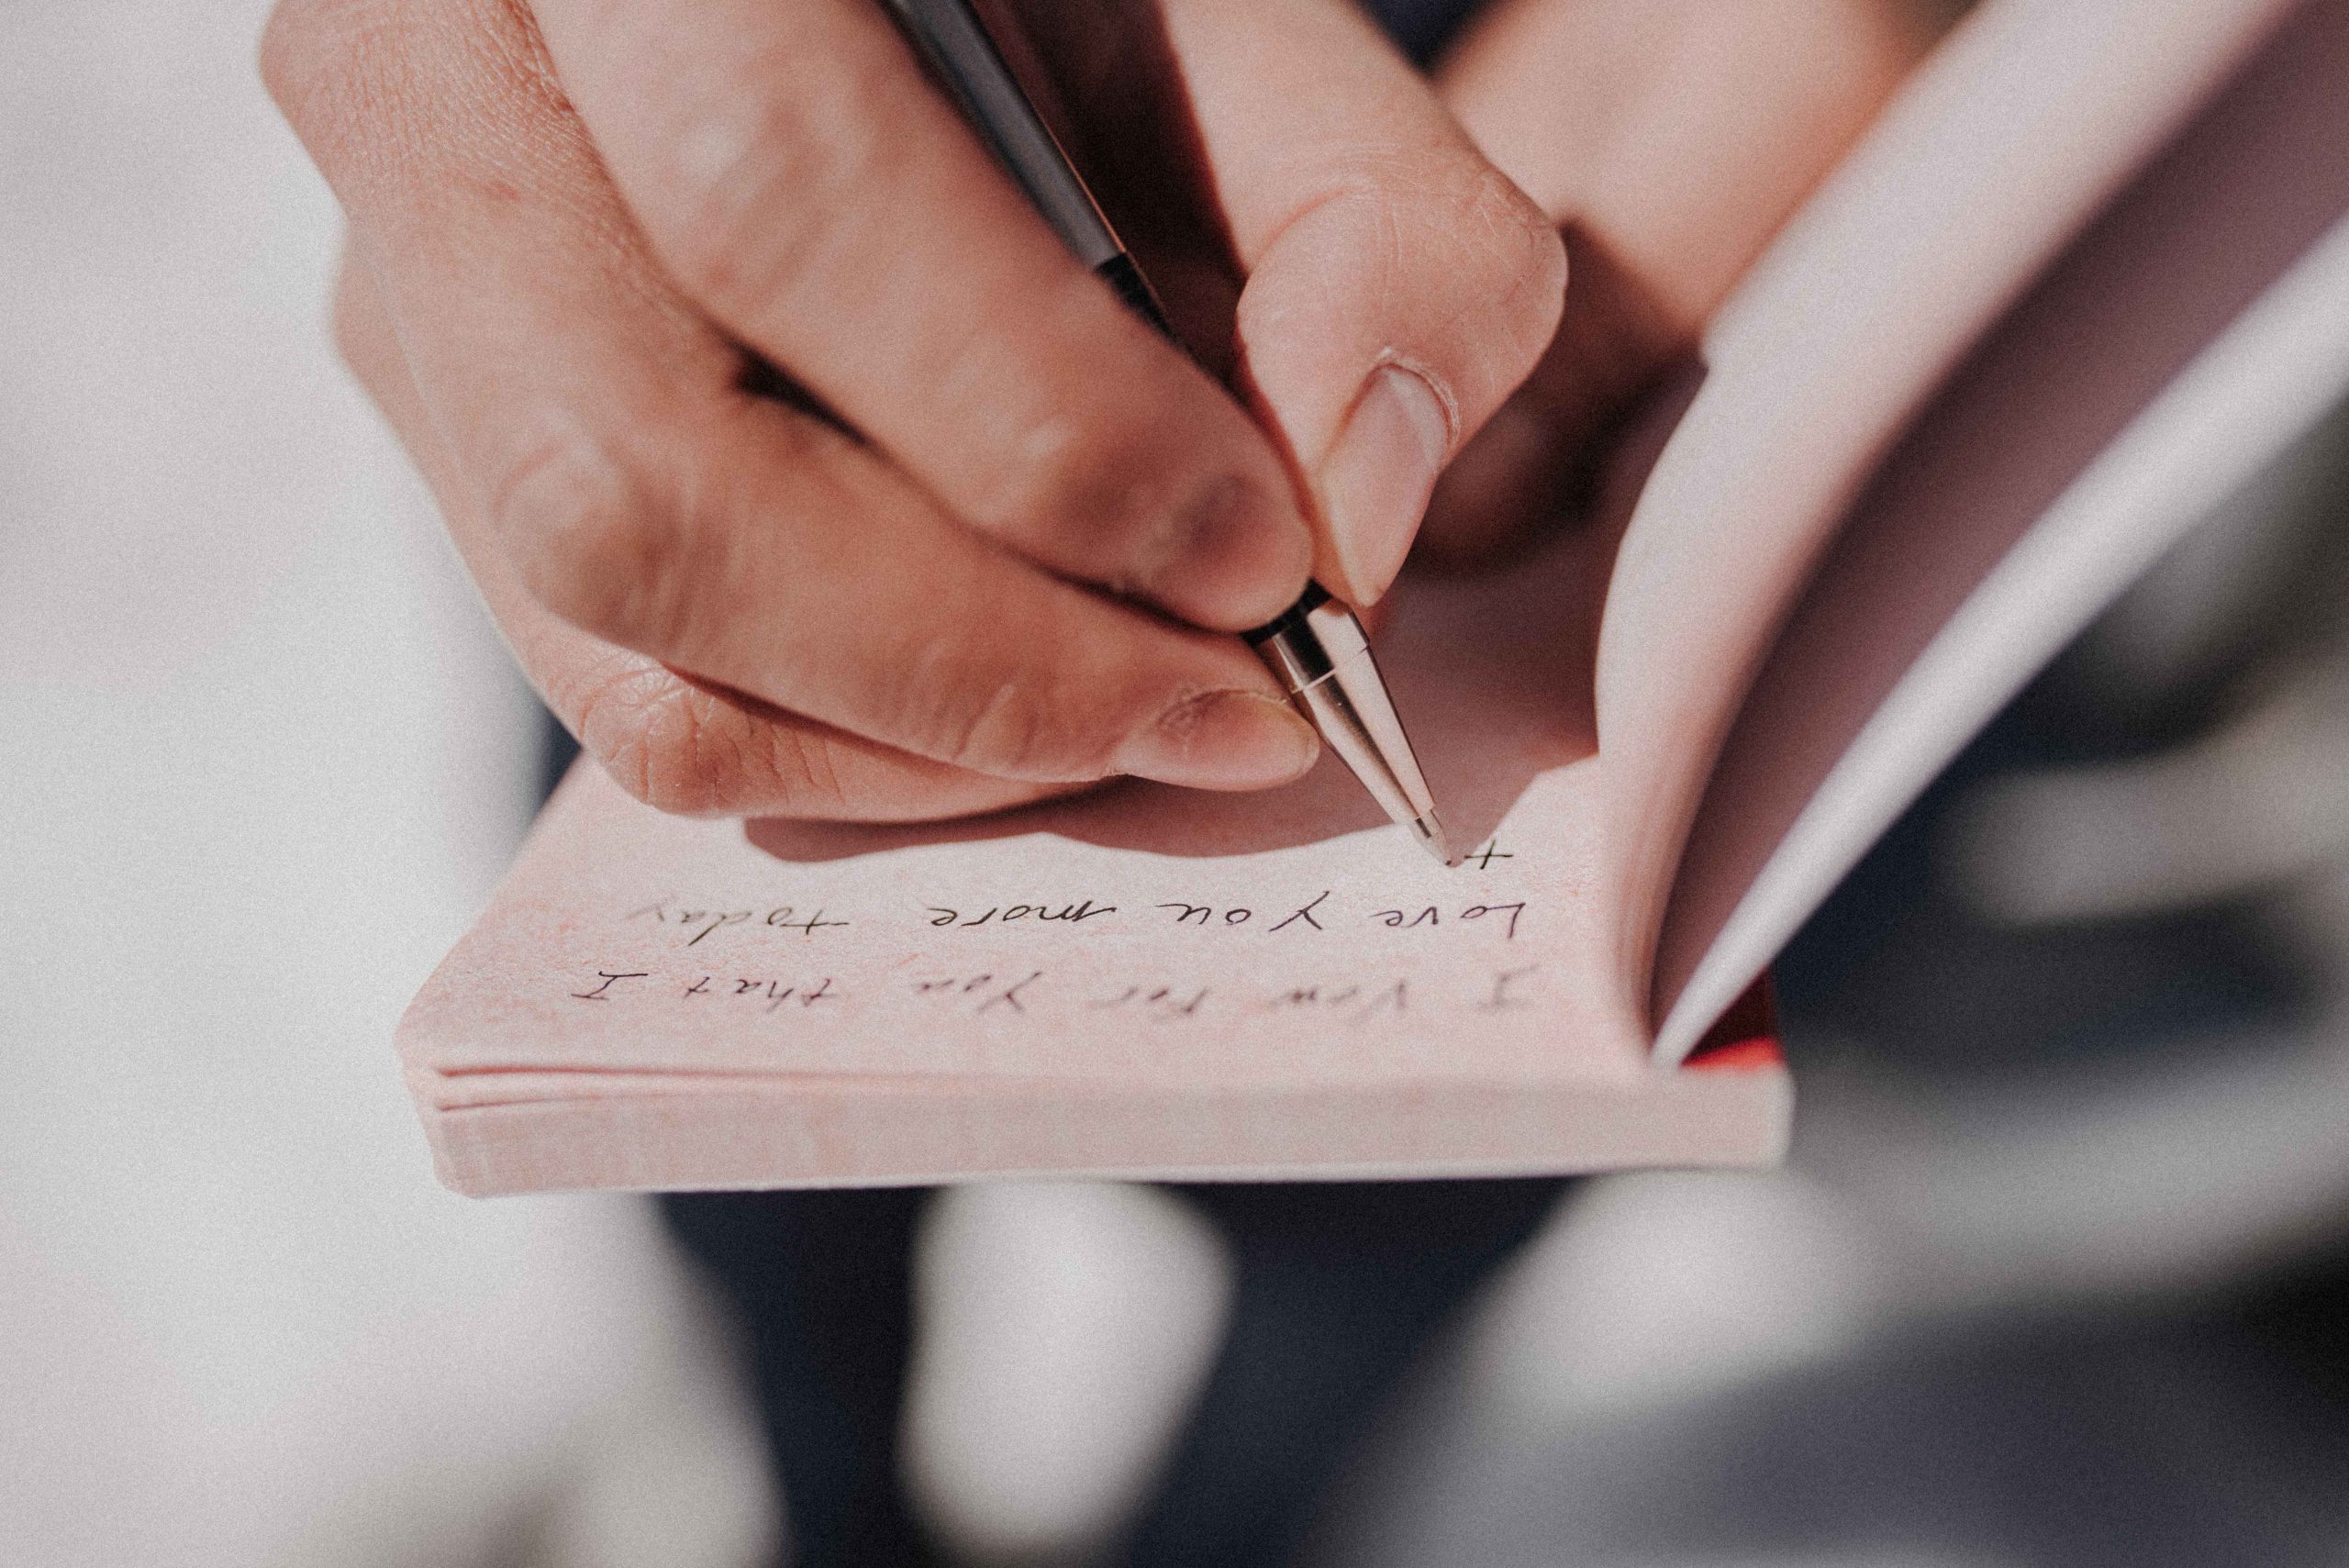 I Vow For You that I
Love you more today
t